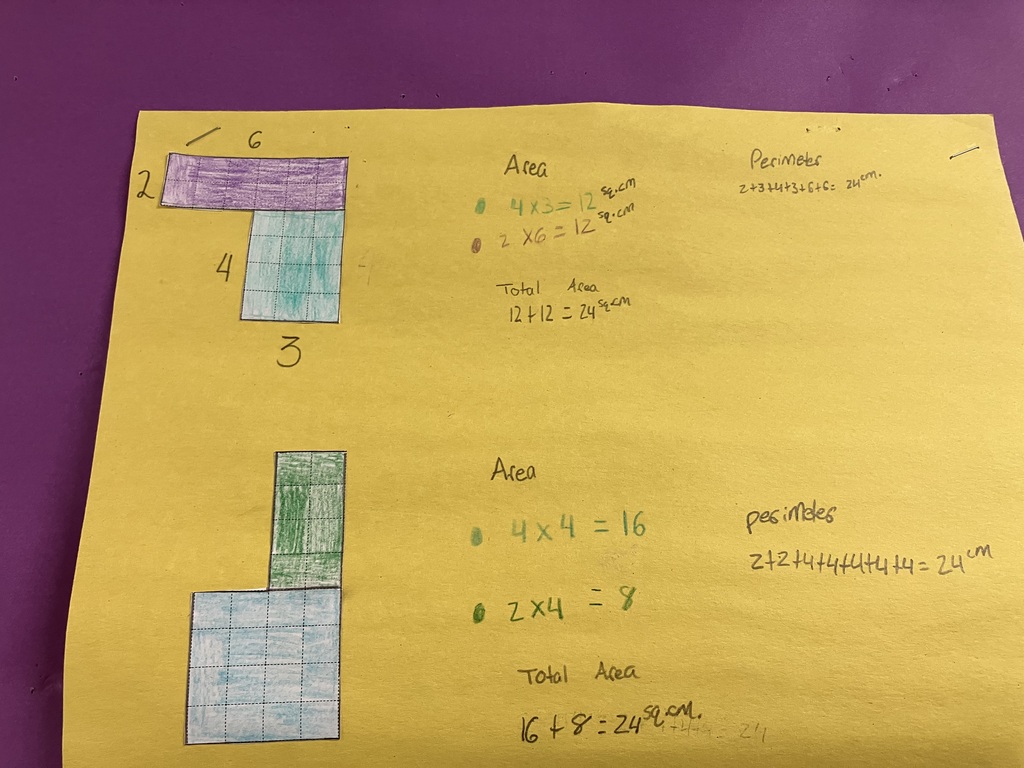 6
2
4
3
Area
4 x 3 = 12 sq.cm
2 x 6 = 12 sq.cm
Total Area
12 + 12 = 24 sq.cm
Perimeter
2+3+4+3+6+6= 24cm.
Area
4 x 4 = 16
2 x 4 = 8
Total Area
16 + 8 = 24 sq.cm.
perimeter
2+2+4+4+4+4+4 = 24 cm